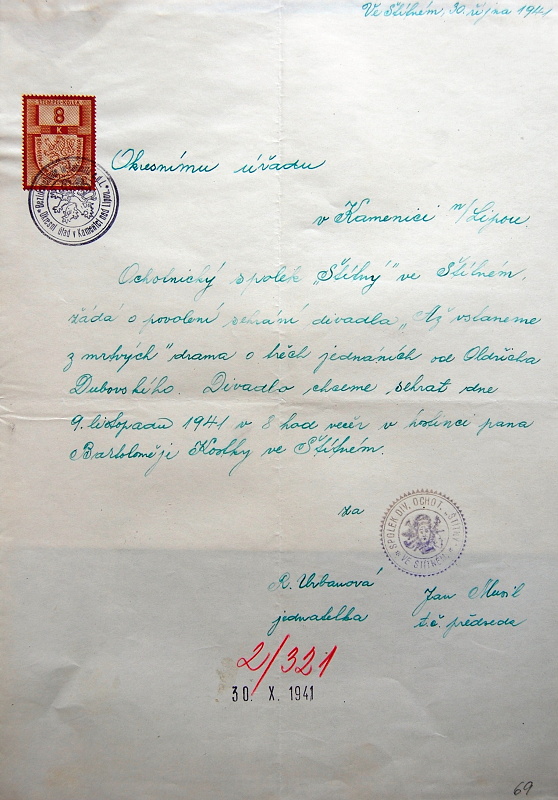 Ve Štítném, 30. října 1941
STEMPEL-KOLEK
8
K
Okresní úřad v Kamenici nad Lipou
Okresnímu úřadu
v Kamenici n/Lipou
Ochotnický spolek „Štítný" ve Štítném,
žádá o povolení sehrání divadla „Až vstaneme
z mrtvých" drama o třech jednáních od Oldřicha
Dubovského. Divadlo chceme sehrát dne
9. listopadu 1941 v 8 hod večer v hostinci pana
Bartoloměje ve Štítném.
za
SPOLEK DIV. OCHOT. „ŠTÍTNÝ"
VE ŠTÍTNÉM
R. Urbanová
jednatelka
Jan Musil
t.č. předseda
2/321
30. X. 1941
69